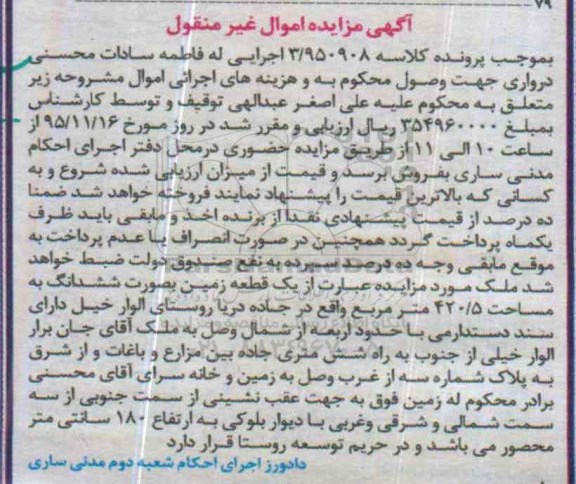 ۷۹
آگهی مزایده اموال غیر منقول
بموجب پرونده کلاسه ۳/۹۵۰۹۰۸ اجرایی له فاطمه سادات محسنی
درواری جهت وصول محکوم به و هزینه های اجرائی اموال مشروحه زیر
متعلق به محکوم علیه علی اصغر عبدالهی توقیف و توسط کارشناس
بمبلغ ۳۵۴۹۶۰۰۰۰ ریال ارزیابی و مقرر شد در روز مورخ ۹۵/۱۱/۱۶ از
ساعت ۱۰ الی ۱۱ از طریق مزایده حضوری درمحل دفتر اجرای احکام
مدنی ساری بفروش برسد و قیمت از میزان ارزیابی شده شروع و به
کسانی که بالاترین قیمت را پیشنهاد نمایند فروخته خواهد شد ضمنا
ده درصد از قیمت پیشنهادی نقدا از برنده اخذ و مابقی باید ظرف
یکماه پرداخت گردد همچنین در صورت انصراف یا عدم پرداخت به
موقع مابقی وجه ده درصد سپرده به نفع صندوق دولت ضبط خواهد
شد ملک مورد مزایده عبارت از یک قطعه زمین بصورت ششدانگ به
مساحت ۴۲۰/۵ متر مربع واقع در جاده دریا روستای الوار خیل دارای
سند دستدارمی با حدود اربعه از شمال وصل به ملک آقای جان برار
الوار خیلی از جنوب به راه شش متری جاده بین مزارع و باغات و از شرق
به پلاک شماره سه از غرب وصل به زمین و خانه سرای آقای محسنی
برادر محکوم له زمین فوق به جهت عقب نشینی از سمت جنوبی از سه
سمت شمالی و شرقی وغربی با دیوار بلوکی به ارتفاع ۱۸۰ سانتی متر
محصور می باشد و در حریم توسعه روستا قرار دارد
دادورز اجرای احکام شعبه دوم مدنی ساری